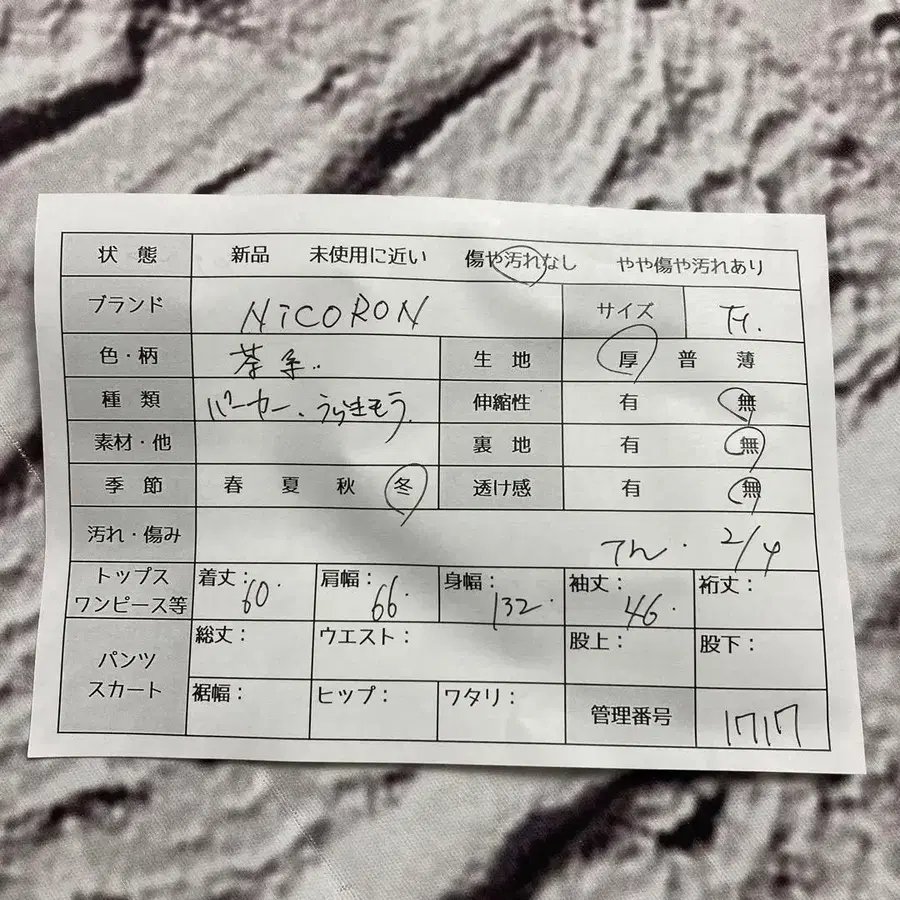 状態 新品 未使用に近い 傷や汚れなし やや傷や汚れあり
ブランド NiCORON サイズ
色・柄 茶系 生地 厚 普 薄
種類 パーカー、うらきもう 伸縮性 有 無
素材・他 裏地 有 無
季節 春 夏 秋 冬 透け感 有 無
汚れ・傷み 2/4
トップス ワンピース等 着丈：60 肩幅：66 身幅：132 袖丈：46 裄丈：
パンツ スカート 総丈： ウエスト： 股上： 股下：
裾幅： ヒップ： ワタリ： 管理番号 1717